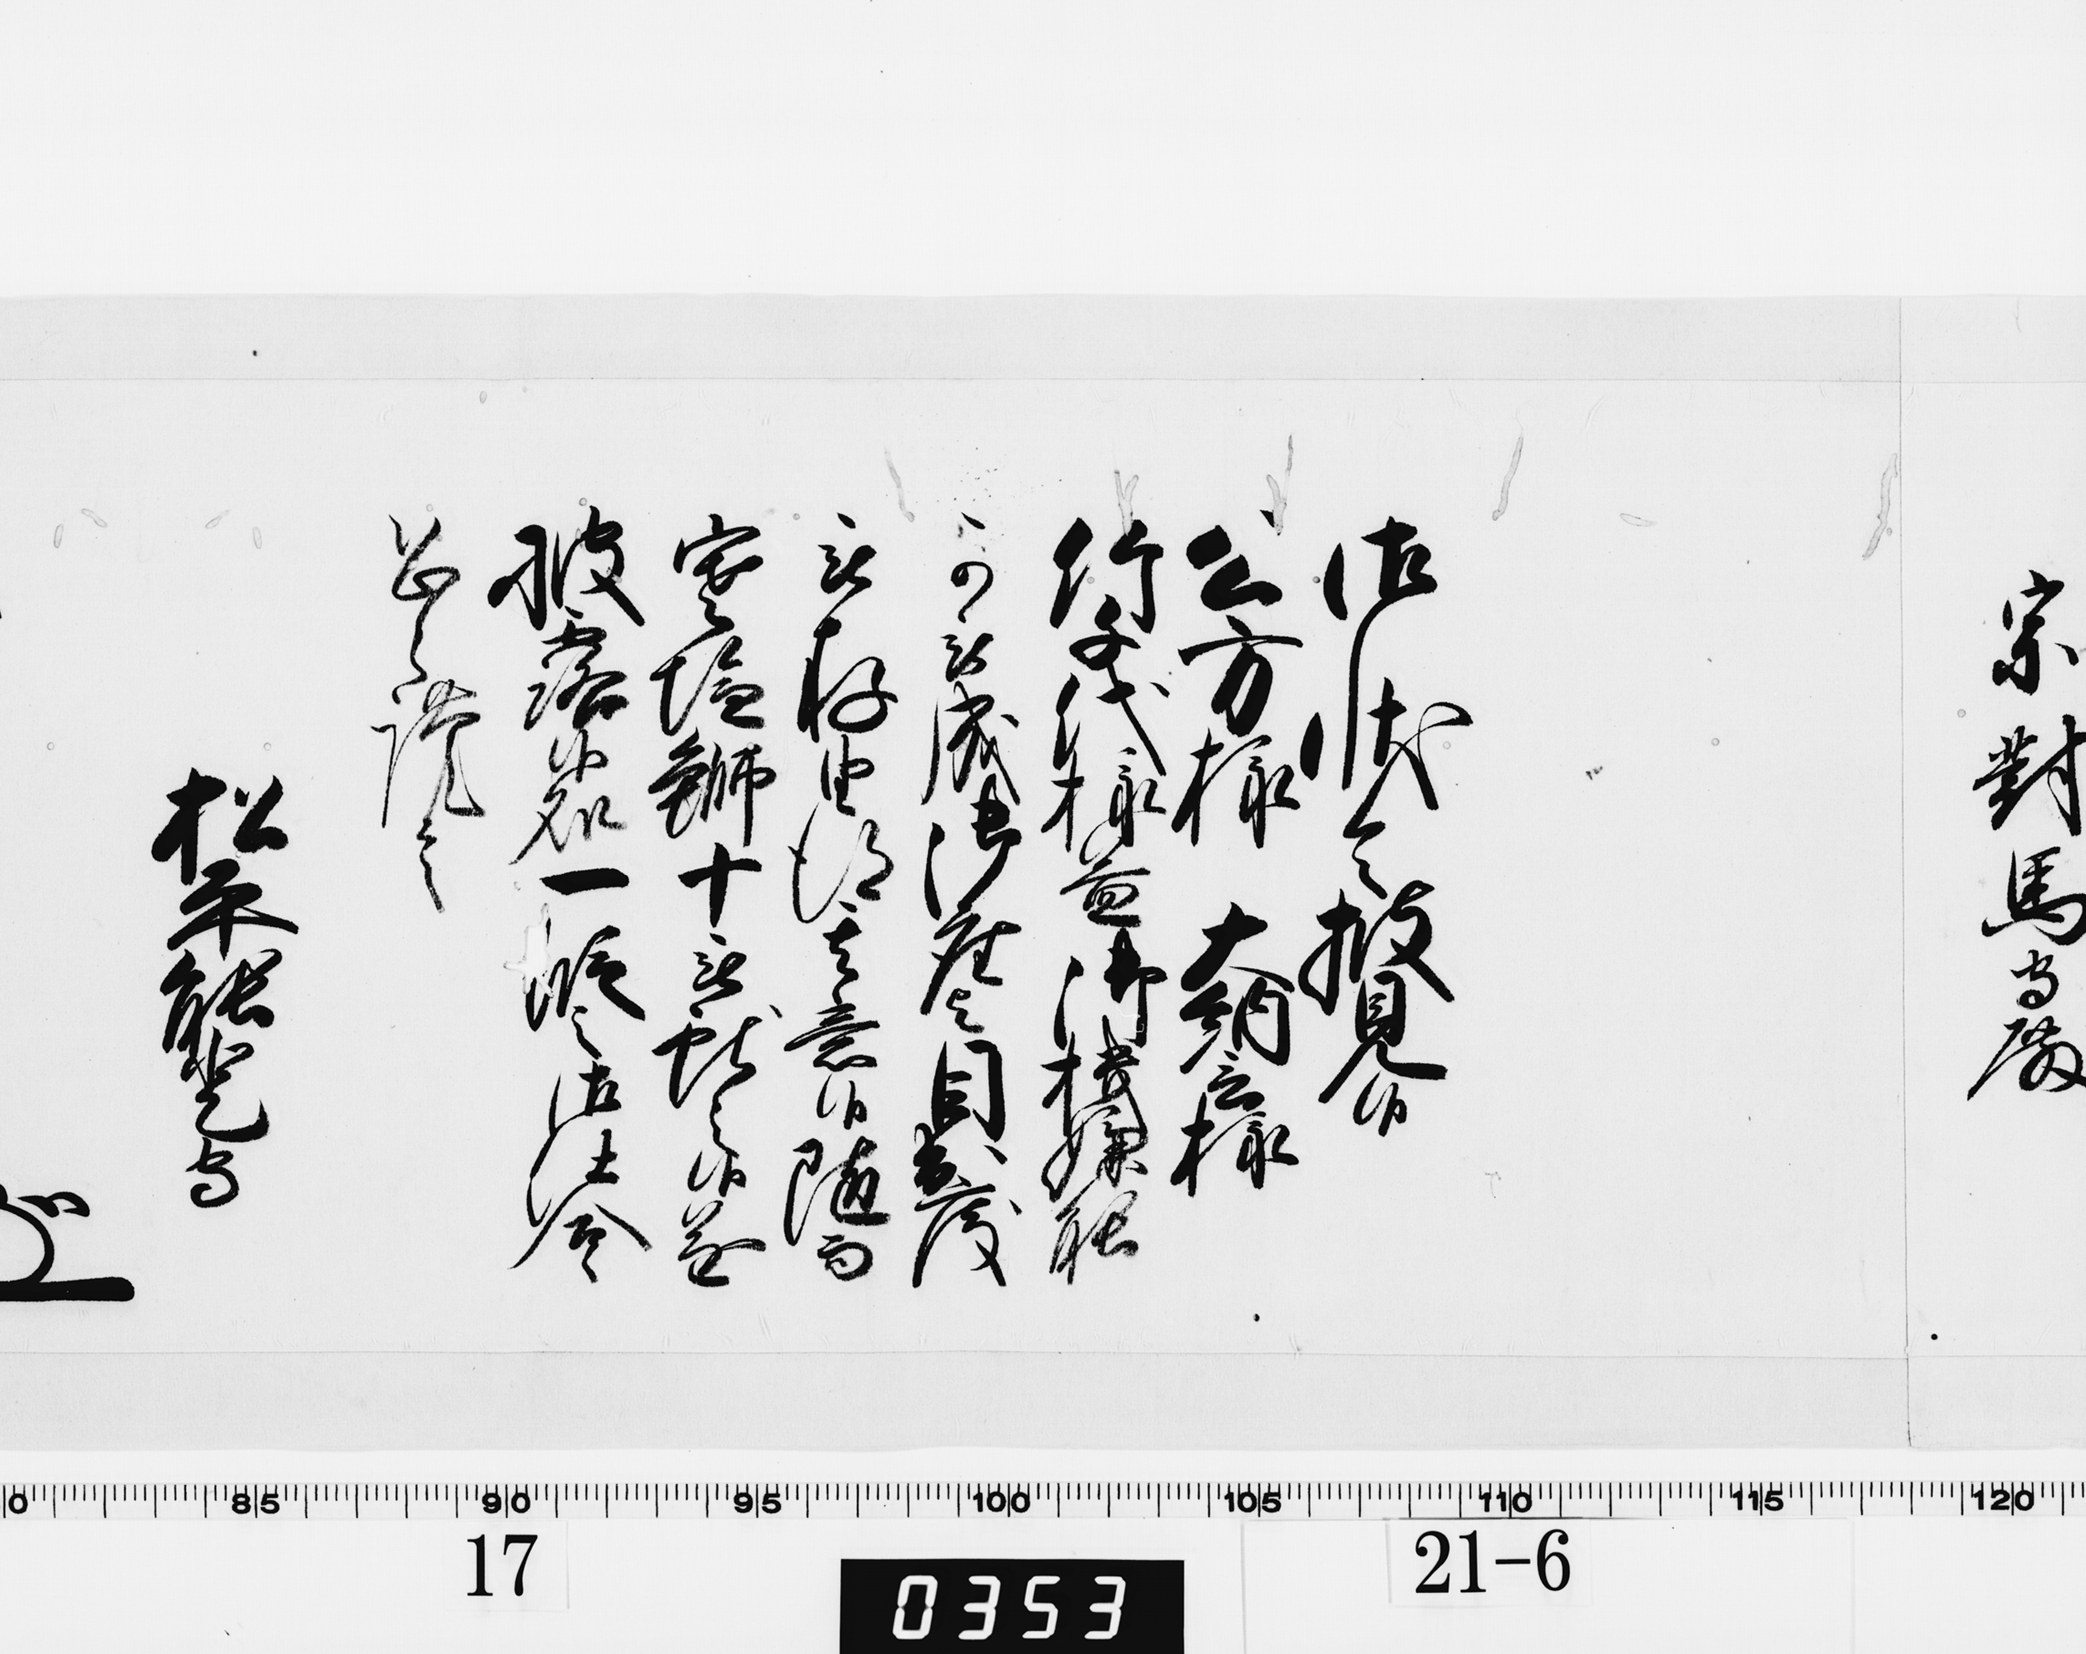 宗對馬守殿
御状令披見候
公方様 大納言様
竹千代様益御機嫌能
可被成御座と目出度
被存由得其意候随而
寒塩鰤十被献之候遂
披露候処一段之御仕合
恐々謹言
松平能登守
0 85 90 95 100 105 110 115 120
17
21-6
0353